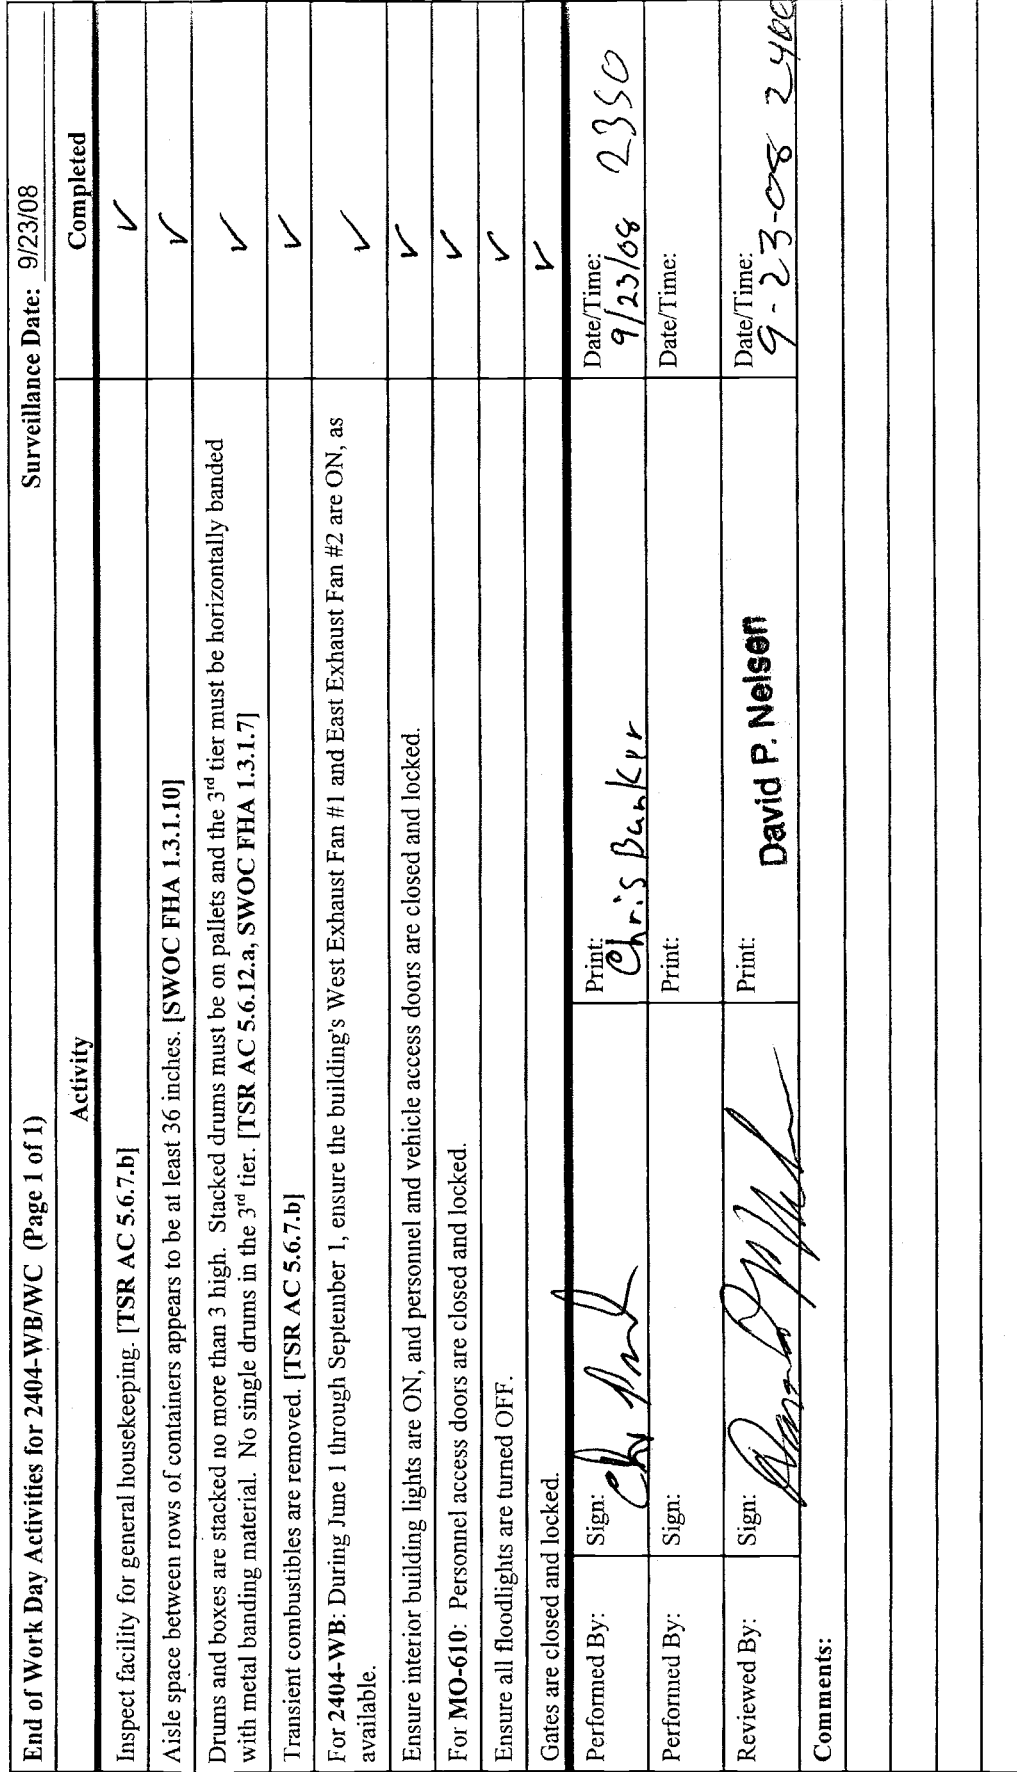 End of Work Day Activities for 2404-WB/WC (Page 1 of 1) Surveillance Date: 9/23/08
Activity Completed
Inspect facility for general housekeeping. [TSR AC 5.6.7.b] ✓
Aisle space between rows of containers appears to be at least 36 inches. [SWOC FHA 1.3.1.10] ✓
Drums and boxes are stacked no more than 3 high. Stacked drums must be on pallets and the 3rd tier must be horizontally banded ✓
with metal banding material. No single drums in the 3rd tier. [TSR AC 5.6.12.a, SWOC FHA 1.3.1.7]
Transient combustibles are removed. [TSR AC 5.6.7.b] ✓
For 2404-WB: During June 1 through September 1, ensure the building's West Exhaust Fan #1 and East Exhaust Fan #2 are ON, as ✓
available.
Ensure interior building lights are ON, and personnel and vehicle access doors are closed and locked. ✓
For MO-610: Personnel access doors are closed and locked. ✓
Ensure all floodlights are turned OFF. ✓
Gates are closed and locked. ✓
Performed By: Sign: Print: Date/Time:
Chris Bunker 9/23/08 2350
Performed By: Sign: Print: Date/Time:
Reviewed By: Sign: Print: Date/Time:
David P. Nelson 9-23-08 2400
Comments: